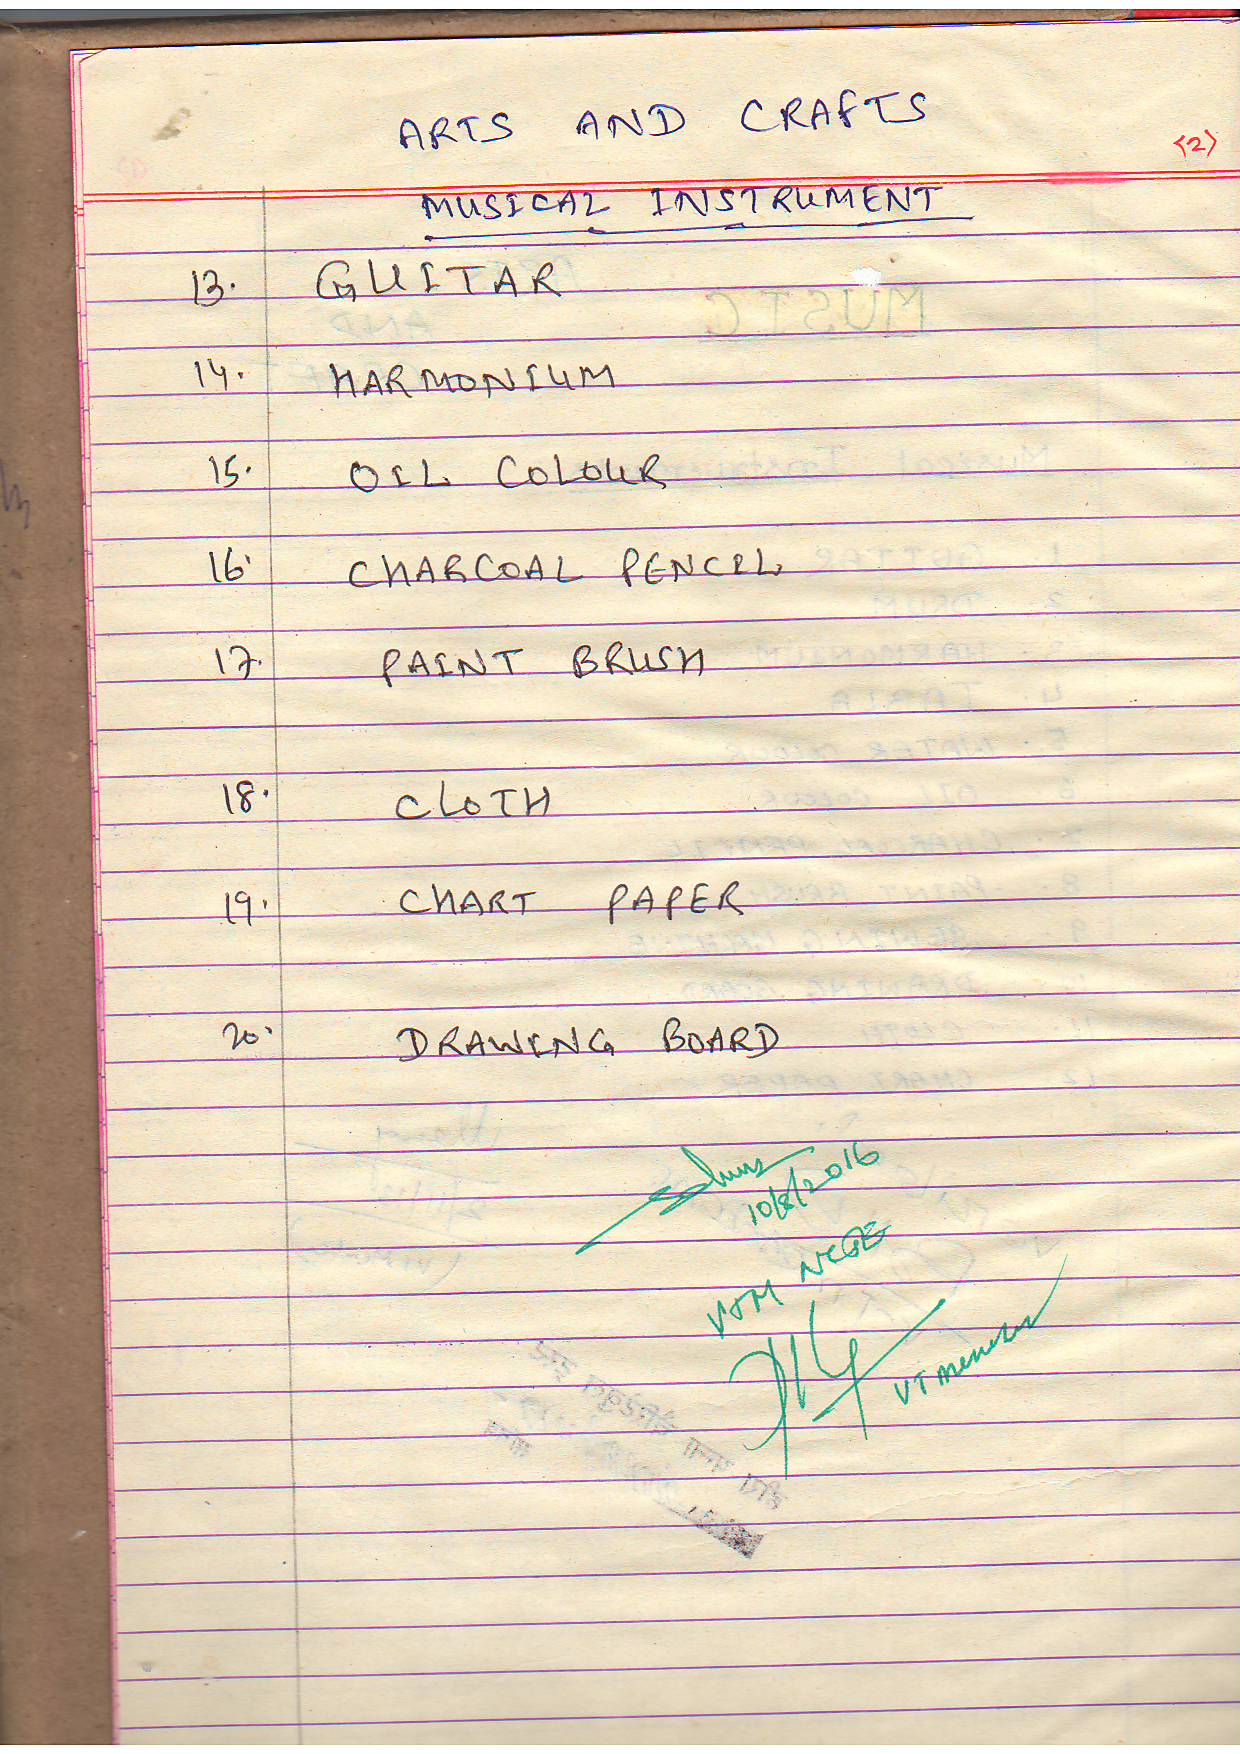 ARTS AND CRAFTS
(2)
MUSICAL INSTRUMENT
13. GUITAR
14. HARMONIUM
15. OIL COLOUR
16. CHARCOAL PENCIL
17. PAINT BRUSH
18. CLOTH
19. CHART PAPER
20. DRAWING BOARD
10/8/2016
VTM NCGE
VT Member